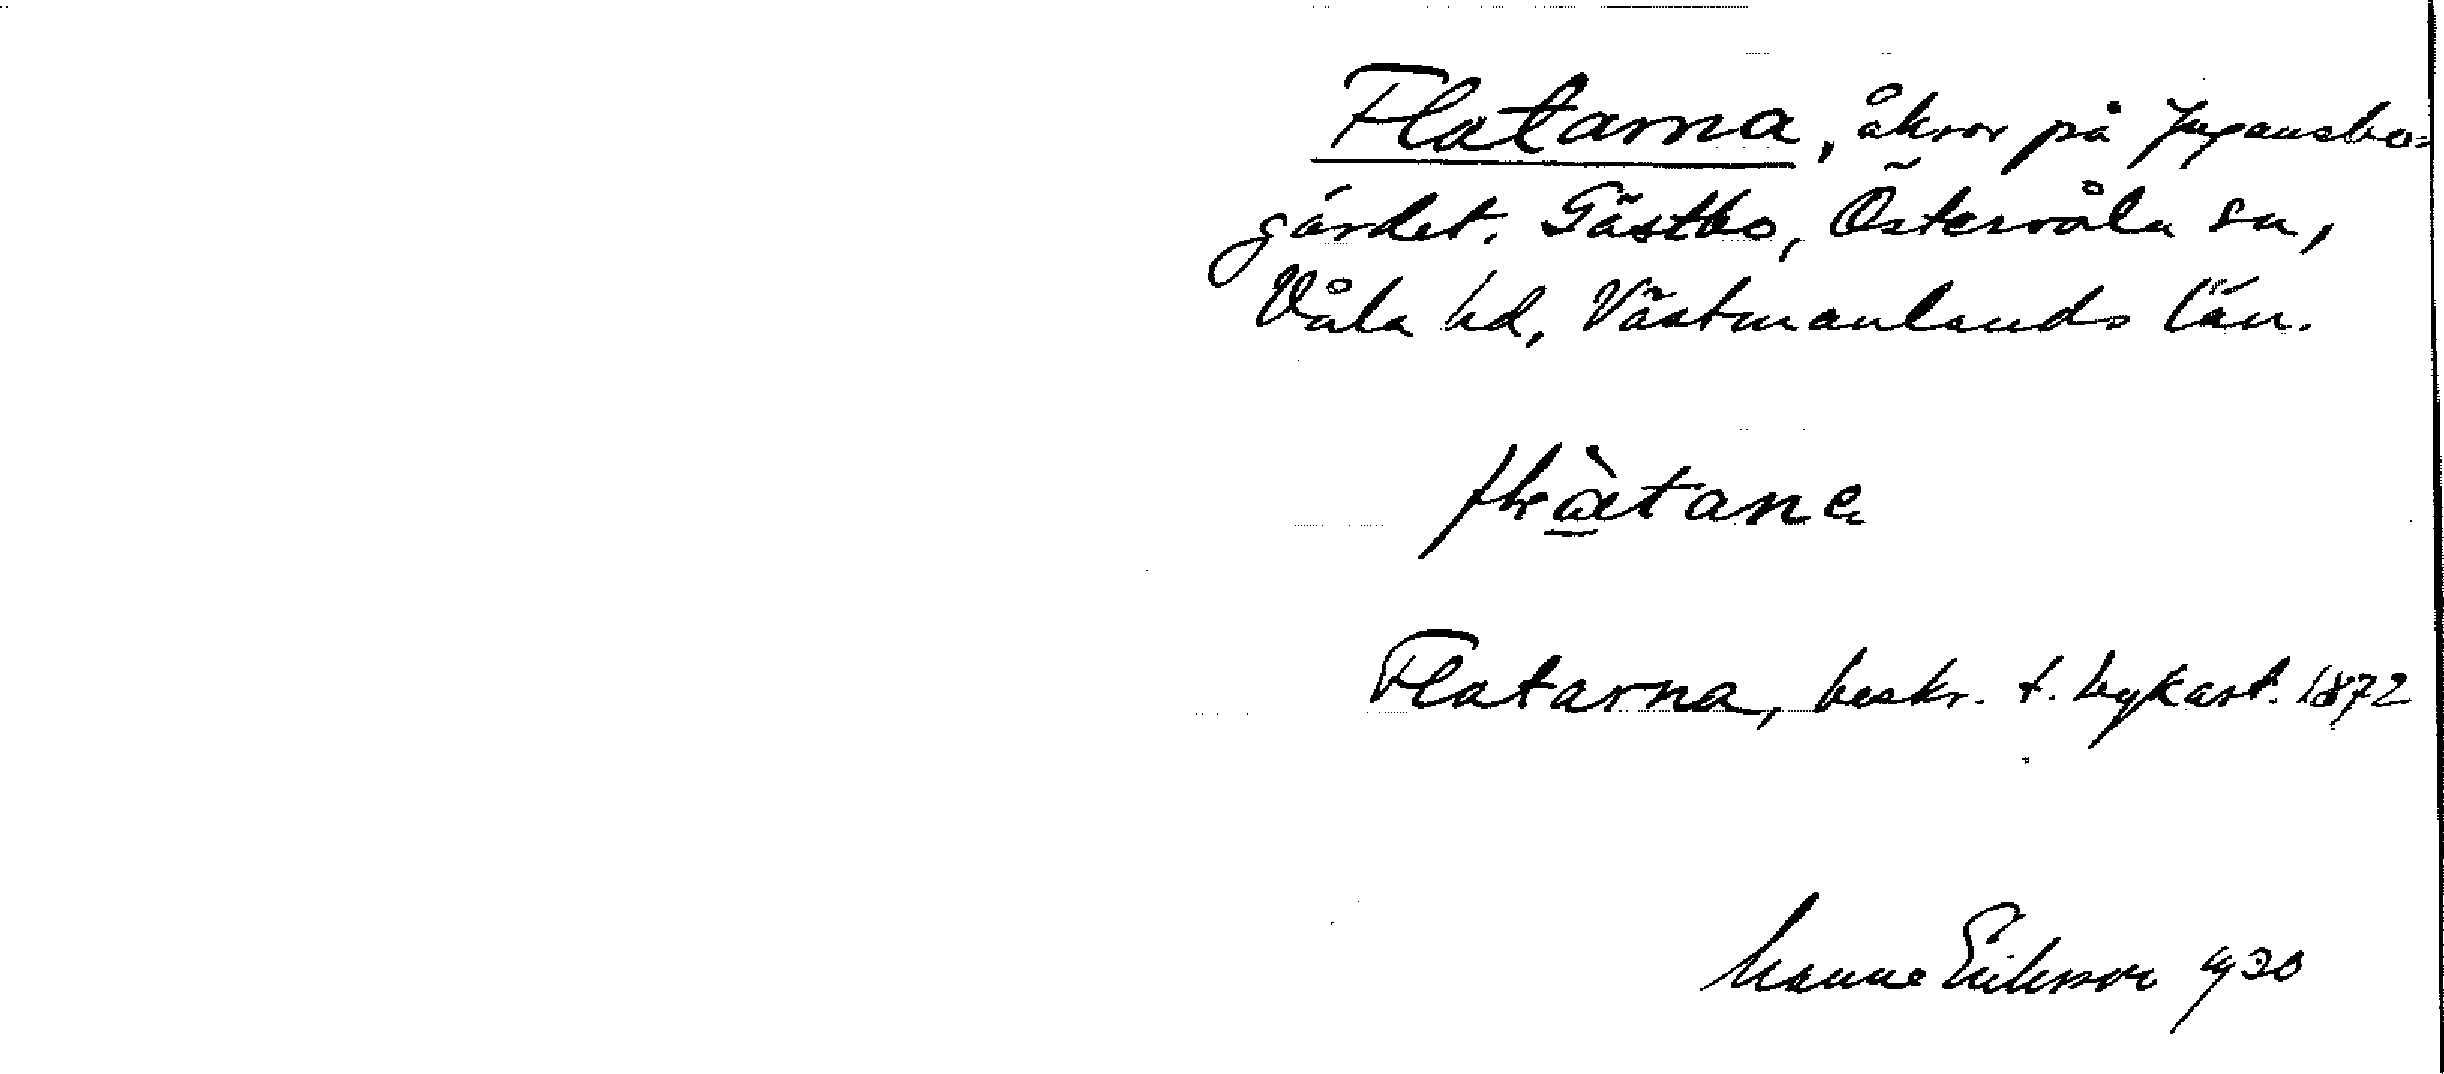 Flatarna, åkrar på Jugansbo-
gärdet. Gästbo, Östervåla sn,
Våla hd, Västmanlands län.
Flatarna, beskr. t. bykart. 1872
Manne Eriksson 1930